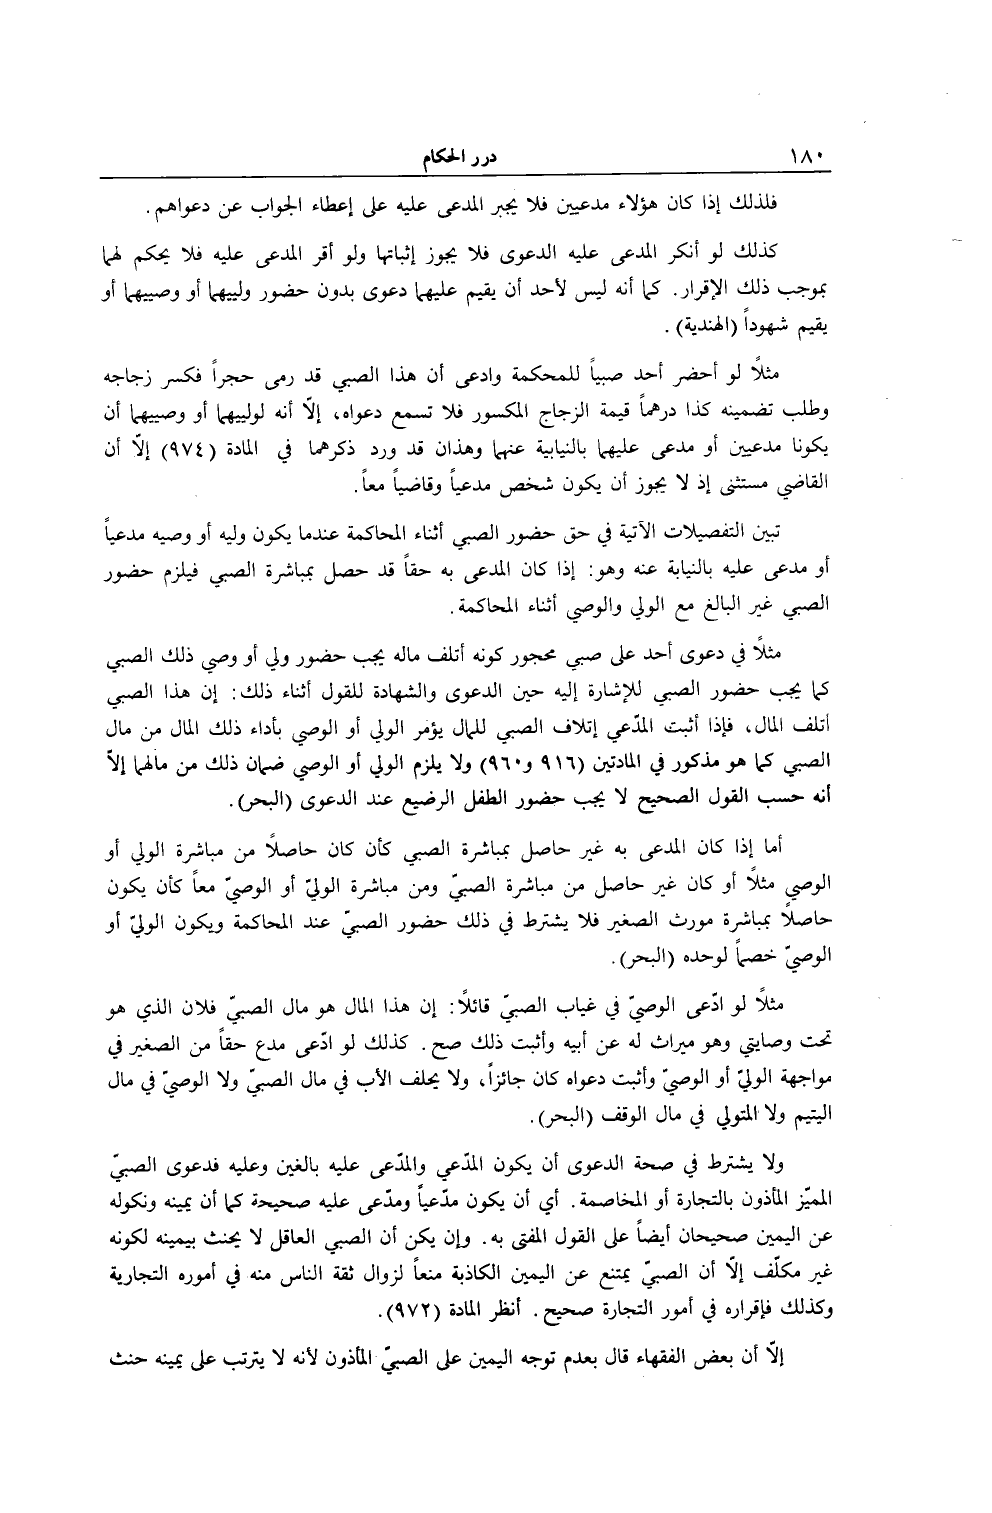 ١٨٠ درر الحكام
فلذلك إذا كان هؤلاء مدعيين فلا يجبر المدعى عليه على إعطاء الجواب عن دعواهم.
كذلك لو أنكر المدعى عليه الدعوى فلا يجوز إثباتها ولو أقر المدعى عليه فلا يحكم لهما
بموجب ذلك الإقرار. كما أنه ليس لأحد أن يقيم عليهما دعوى بدون حضور وليهما أو وصييهما أو
يقيم شهوداً (الهندية).
مثلاً لو أحضر أحد صبياً للمحكمة وادعى أن هذا الصبي قد رمى حجراً فكسر زجاجه
وطلب تضمينه كذا درهماً قيمة الزجاج المكسور فلا تسمع دعواه، إلّا أنه لوليهما أو وصييهما أن
يكونا مدعيين أو مدعى عليهما بالنيابية عنهما وهذان قد ورد ذكرهما في المادة (٩٧٤) إلّا أن
القاضي مستثنى إذ لا يجوز أن يكون شخص مدعياً وقاضياً معاً.
تبين التفصيلات الآتية في حق حضور الصبي أثناء المحاكمة عندما يكون وليه أو وصيه مدعياً
أو مدعى عليه بالنيابة عنه وهو: إذا كان المدعى به حقاً قد حصل بمباشرة الصبي فيلزم حضور
الصبي غير البالغ مع الولي والوصي أثناء المحاكمة.
مثلاً في دعوى أحد على صبي محجور كونه أتلف ماله يجب حضور ولي أو وصي ذلك الصبي
كما يجب حضور الصبي للإشارة إليه حين الدعوى والشهادة للقول أثناء ذلك: إن هذا الصبي
أتلف المال، فإذا أثبت المدّعي إتلاف الصبي للمال يؤمر الولي أو الوصي بأداء ذلك المال من مال
الصبي كما هو مذكور في المادتين (٩١٦ و٩٦٠) ولا يلزم الولي أو الوصي ضمان ذلك من مالهما إلاّ
أنه حسب القول الصحيح لا يجب حضور الطفل الرضيع عند الدعوى (البحر).
أما إذا كان المدعى به غير حاصل بمباشرة الصبي كأن كان حاصلاً من مباشرة الولي أو
الوصي مثلاً أو كان غير حاصل من مباشرة الصبيّ ومن مباشرة الوليّ أو الوصيّ معاً كأن يكون
حاصلاً بمباشرة مورث الصغير فلا يشترط في ذلك حضور الصبيّ عند المحاكمة ويكون الوليّ أو
الوصيّ خصماً لوحده (البحر).
مثلاً لو ادّعى الوصيّ في غياب الصبيّ قائلاً: إن هذا المال هو مال الصبيّ فلان الذي هو
تحت وصايتي وهو ميراث له عن أبيه وأثبت ذلك صح. كذلك لو ادّعى مدع حقاً من الصغير في
مواجهة الوليّ أو الوصيّ وأثبت دعواه كان جائزاً، ولا يحلف الأب في مال الصبيّ ولا الوصيّ في مال
اليتيم ولا المتولي في مال الوقف (البحر).
ولا يشترط في صحة الدعوى أن يكون المدّعي والمدّعى عليه بالغين وعليه فدعوى الصبيّ
المميّز المأذون بالتجارة أو المخاصمة. أي أن يكون مدّعياً ومدّعى عليه صحيحة كما أن يمينه ونكوله
عن اليمين صحيحان أيضاً على القول المفتى به. وإن يكن أن الصبي العاقل لا يحنث بيمينه لكونه
غير مكلّف إلّا أن الصبيّ يمتنع عن اليمين الكاذبة منعاً لزوال ثقة الناس منه في أموره التجارية
وكذلك فإقراره في أمور التجارة صحيح. أنظر المادة (٩٧٢).
إلّا أن بعض الفقهاء قال بعدم توجه اليمين على الصبيّ المأذون لأنه لا يترتب على يمينه حنث